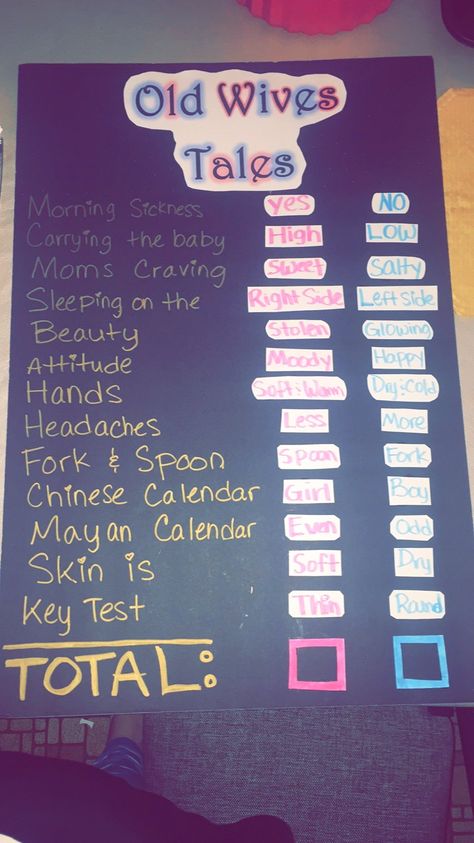 Old Wives
Tales
Morning Sickness Yes NO
Carrying the baby High LOW
Moms Craving Sweet Salty
Sleeping on the Right Side Left side
Beauty Stolen Glowing
Attitude Moody Happy
Hands Soft:Warm Dry:Cold
Headaches Less More
Fork & Spoon Spoon Fork
Chinese Calendar Girl Boy
Mayan Calendar Even Odd
Skin is Soft Dry
Key Test Thin Round
TOTAL: